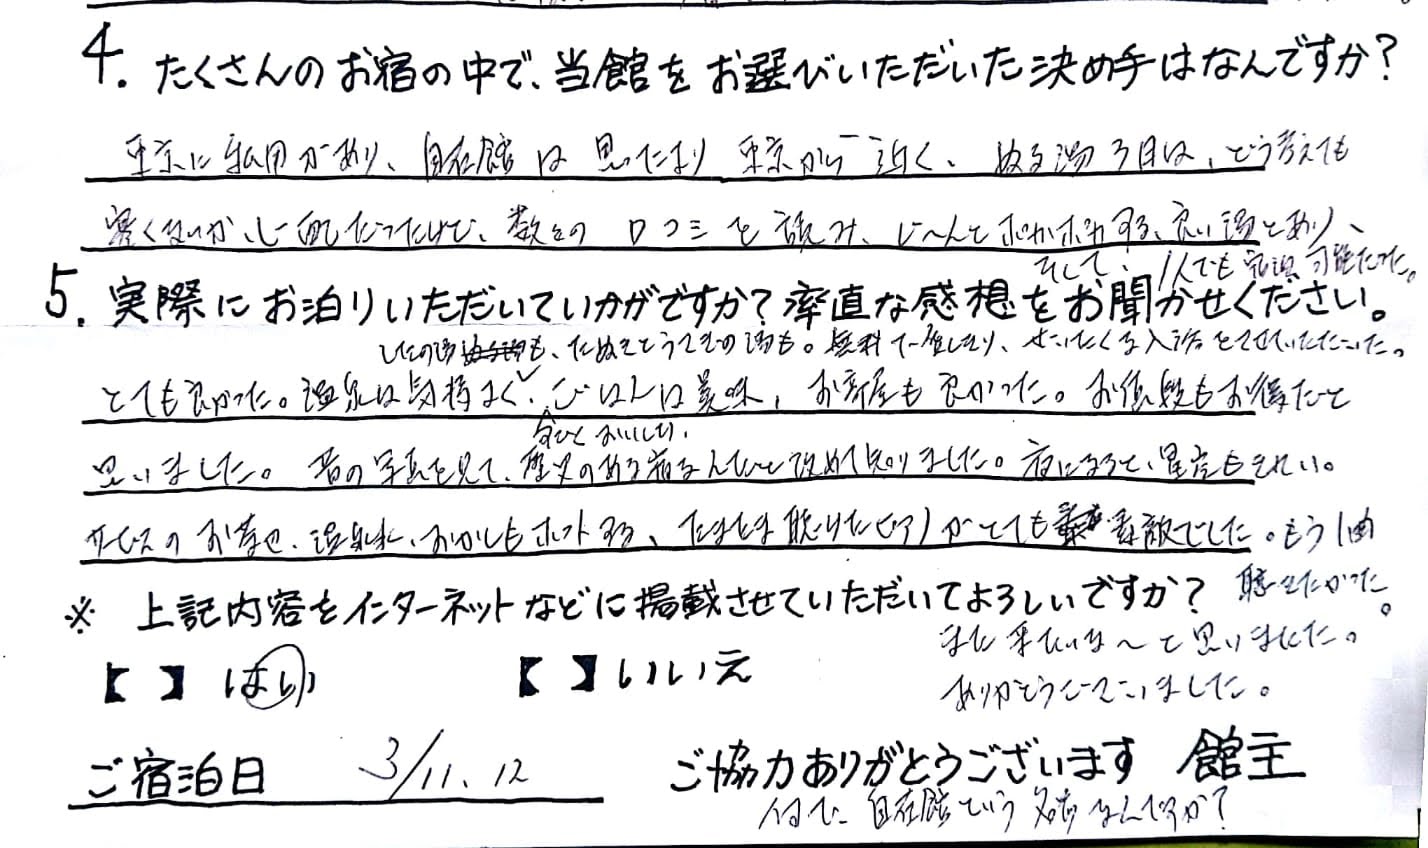 4. たくさんのお宿の中で、当館をお選びいただいた決め手はなんですか？
東京に私用があり、自在館は思ったより東京から近く、ぬる湯3月は、どう考えても
寒くないか、心配だったけど、数々の口コミを読み、じ〜んとポカポカする、良い湯とあり、
そして、1人でも宿泊可能だった。
5. 実際にお泊りいただいていかがですか？率直な感想をお聞かせください。
したの湯も、たぬきとうさぎの湯も。無料で貸しきり、ぜいたくな入浴をさせていただいた。
とても良かった。温泉は気持よく、ごはんは美味、お部屋も良かった。お値段もお得だと
思いました。昔の写真を見て、歴史のある宿なんだと改めて知りました。夜になると、星空もきれい。
サービスのお茶や、温泉水、おかしもホットする、たまたま聴けたピアノがとても素敵でした。もう1曲
聴きたかった。
※ 上記内容をインターネットなどに掲載させていただいてよろしいですか？
また来たいな〜と思いました。
【 】はい 【 】いいえ
ありがとうございました。
ご宿泊日 3/11、12 ご協力ありがとうございます 館主
何で自在館という名前なんですか？